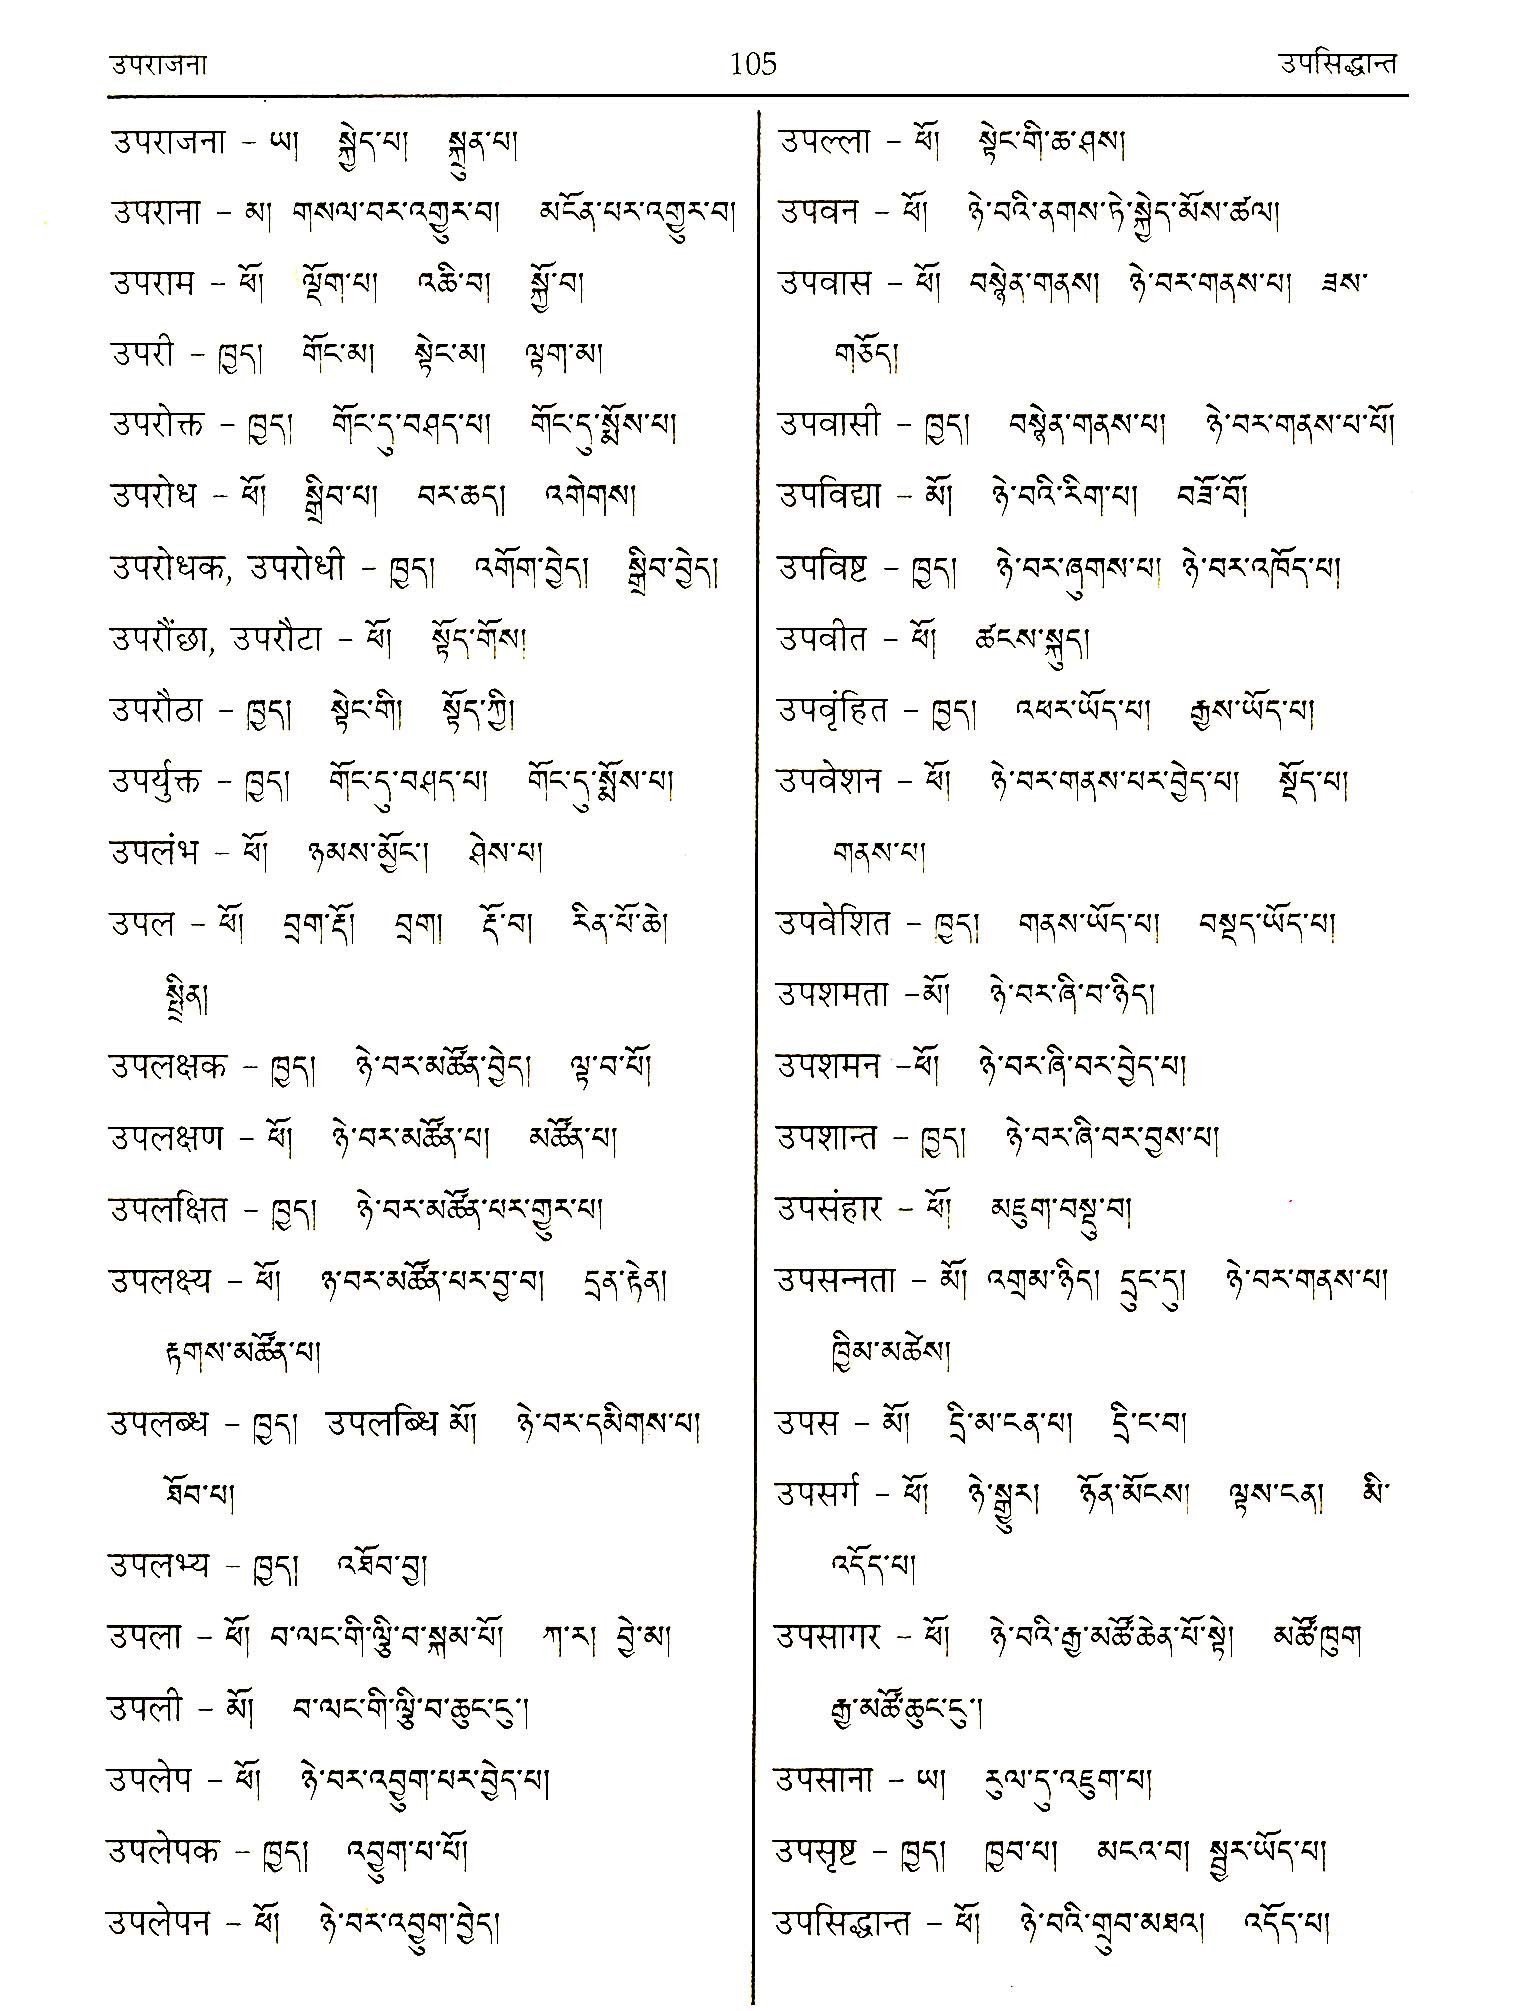 उपराजना 105 उपसिद्धान्त
उपराजना – ཡ། སྐྱེད་པ། སྐྲུན་པ།
उपराना – མ། གསལ་བར་འགྱུར་བ། མངོན་པར་འགྱུར་བ།
उपराम – ཕོ། ལྡོག་པ། འཆི་བ། སྐྱོ་བ།
उपरी – ཁྱད། གོང་མ། སྟེང་མ། ལྟག་མ།
उपरोक्त – ཁྱད། གོང་དུ་བཤད་པ། གོང་དུ་སྨོས་པ།
उपरोध – ཕོ། སྒྲིབ་པ། བར་ཆད། འགེགས།
उपरोधक, उपरोधी – ཁྱད། འགོག་བྱེད། སྒྲིབ་བྱེད།
उपरौंछा, उपरौटा – ཕོ། སྟོད་གོས།
उपरौठा – ཁྱད། སྟེང་གི། སྟོད་ཀྱི།
उपर्युक्त – ཁྱད། གོང་དུ་བཤད་པ། གོང་དུ་སྨོས་པ།
उपलंभ – ཕོ། ཉམས་མྱོང་། ཤེས་པ།
उपल – ཕོ། བྲག་རྡོ། བྲག། རྡོ་བ། རིན་པོ་ཆེ།
སྤྲིན།
उपलक्षक – ཁྱད། ཉེ་བར་མཚོན་བྱེད། ལྟ་བ་པོ།
उपलक्षण – ཕོ། ཉེ་བར་མཚོན་པ། མཚོན་པ།
उपलक्षित – ཁྱད། ཉེ་བར་མཚོན་པར་གྱུར་པ།
उपलक्ष्य – ཕོ། ཉ་བར་མཚོན་པར་བྱ་བ། དྲན་རྟེན།
རྟགས་མཚོན་པ།
उपलब्ध – ཁྱད། उपलब्धि མོ། ཉེ་བར་དམིགས་པ།
ཐོབ་པ།
उपलभ्य – ཁྱད། འཐོབ་བྱ།
उपला – ཕོ། བ་ལང་གི་ལྕི་བ་སྐམ་པོ། ཀ་ར། བྱེ་མ།
उपली – མོ། བ་ལང་གི་ལྕི་བ་ཆུང་ངུ་།
उपलेप – ཕོ། ཉེ་བར་འབྱུག་པར་བྱེད་པ།
उपलेपक – ཁྱད། འབྱུག་པ་པོ།
उपलेपन – ཕོ། ཉེ་བར་འབྱུག་བྱེད།
उपल्ला – ཕོ། སྟེང་གི་ཆ་ཤས།
उपवन – ཕོ། ཉེ་བའི་ནགས་ཏེ་སྐྱེད་མོས་ཚལ།
उपवास – ཕོ། བསྙེན་གནས། ཉེ་བར་གནས་པ། ཟས་
གཅོད།
उपवासी – ཁྱད། བསྙེན་གནས་པ། ཉེ་བར་གནས་པ་པོ།
उपविद्या – མོ། ཉེ་བའི་རིག་པ། བཟོ་བོ།
उपविष्ट – ཁྱད། ཉེ་བར་ཞུགས་པ། ཉེ་བར་འཁོད་པ།
उपवीत – ཕོ། ཚངས་སྐུད།
उपवृंहित – ཁྱད། འཕར་ཡོད་པ། རྒྱས་ཡོད་པ།
उपवेशन – ཕོ། ཉེ་བར་གནས་པར་བྱེད་པ། སྡོད་པ།
གནས་པ།
उपवेशित – ཁྱད། གནས་ཡོད་པ། བསྡད་ཡོད་པ།
उपशमता –མོ། ཉེ་བར་ཞི་བ་ཉིད།
उपशमन –ཕོ། ཉེ་བར་ཞི་བར་བྱེད་པ།
उपशान्त – ཁྱད། ཉེ་བར་ཞི་བར་བྱས་པ།
उपसंहार – ཕོ། མཇུག་བསྡུ་བ།
उपसन्नता – མོ། འགྲམ་ཉིད། དྲུང་དུ། ཉེ་བར་གནས་པ།
ཁྱིམ་མཚེས།
उपस – མོ། དྲི་མ་ངན་པ། དྲི་ང་བ།
उपसर्ग – ཕོ། ཉེ་སྒྱུར། ཉོན་མོངས། ལྟས་ངན། མི་
འདོད་པ།
उपसागर – ཕོ། ཉེ་བའི་རྒྱ་མཚོ་ཆེན་པོ་སྟེ། མཚོ་ཁུག
རྒྱ་མཚོ་ཆུང་ངུ་།
उपसाना – ཡ། རུལ་དུ་འཇུག་པ།
उपसृष्ट – ཁྱད། ཁྱབ་པ། མངའ་བ། སྦྱར་ཡོད་པ།
उपसिद्धान्त – ཕོ། ཉེ་བའི་གྲུབ་མཐའ། འདོད་པ།